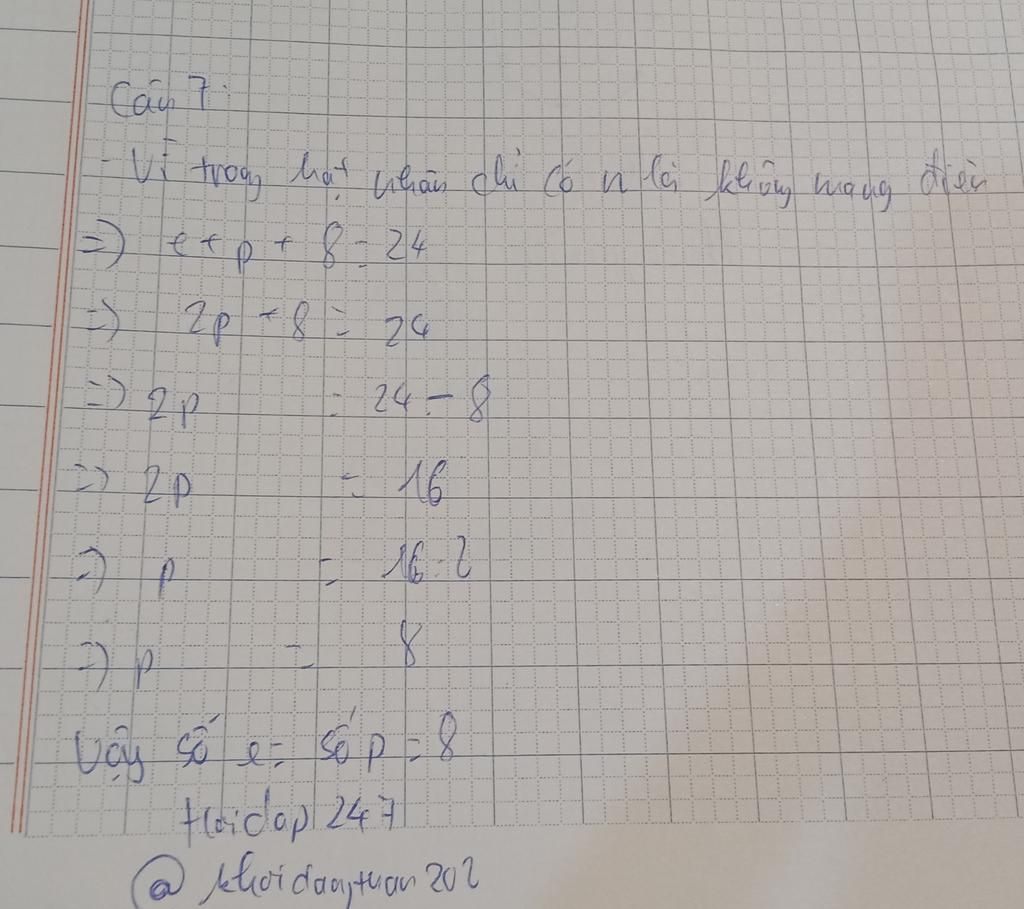 Câu 7:
- Vì trong hạt nhân chỉ có n là không mang điện
=> e + p + 8 = 24
=> 2p + 8 = 24
=> 2p = 24 - 8
=> 2p = 16
=> p = 16 : 2
=> p = 8
Vậy số e = số p = 8
Hoidap 247
@ khoidangtuan202